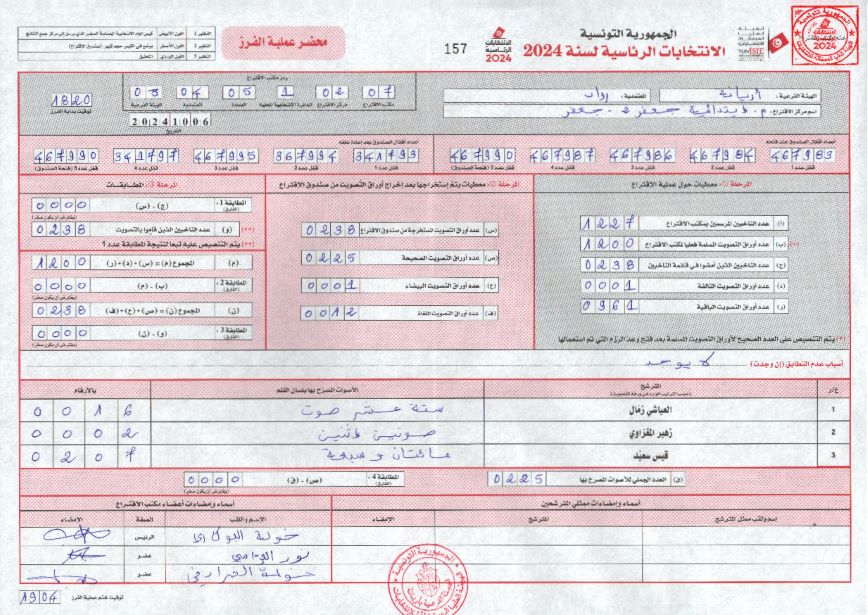 الجمهورية التونسية
الانتخابات الرئاسية لسنة 2024
157
الانتخابات الرئاسية 2024
محضر عملية الفرز
النظير 1 اللون الأبيض
النظير 2 اللون الأصفر
النظير 3 اللون الوردي التعليق
الهيئة الفرعية: أريانة
المعتمدية: رواد
اسم مركز الاقتراع:
رمز مكتب الاقتراع
03 04 05 1 02 07
الهيئة الفرعية المعتمدية العمادة الدائرة الانتخابية المحلية مركز الاقتراع مكتب الاقتراع
1820
توقيت بداية الفرز
20241006
التاريخ
أعداد أقفال الصندوق عند فتحه
467983 467984 467986 467987 467990
قفل عدد 1 قفل عدد 2 قفل عدد 3 قفل عدد 4 قفل عدد 5 (فتحة الصندوق)
أعداد أقفال الصندوق بعد إعادة غلقه
341793 367994 467995 341797 467990
معطيات حول عملية الاقتراع
(أ) عدد الناخبين المرسمين بمكتب الاقتراع 1227
(ب) عدد أوراق التصويت المسلمة فعليا لمكتب الاقتراع 1200
(ج) عدد الناخبين الذين أمضوا في قائمة الناخبين 0238
(د) عدد أوراق التصويت التالفة 0001
(ر) عدد أوراق التصويت الباقية 0961
(*) يتم التنصيص على العدد الصحيح لأوراق التصويت المسلمة بعد فتح وعد الرزم التي تم استعمالها
معطيات يتم إستخراجها بعد إخراج أوراق التصويت من صندوق الاقتراع
(س) عدد أوراق التصويت المستخرجة من صندوق الاقتراع 0238
(ص) عدد أوراق التصويت الصحيحة 0225
(ع) عدد أوراق التصويت البيضاء 0001
(ف) عدد أوراق التصويت الملغاة 0012
المطابقات
المطابقة 1: (ج) - (س) 0000
(و) عدد الناخبين الذين قاموا بالتصويت 0238
(**) يتم التنصيص عليه تبعا لنتيجة المطابقة عدد 1
(م) المجموع (م) = (س) + (د) + (ر) 1200
المطابقة 2: (ب) - (م) 0000
(ن) المجموع (ن) = (ص) + (ع) + (ف) 0238
المطابقة 3: (و) - (ن) 0000
أسباب عدم التطابق (إن وجدت) لا يوجد
ع/ر المترشح الأصوات المصرح بها بلسان القلم بالأرقام
1 العياشي زمال ستة عشر صوت 0016
2 زهير المغزاوي 0002
3 قيس سعيّد مائتان وسبعة 0207
(ق) العدد الجملي للأصوات المصرح بها 0225
المطابقة 4: (ص) - (ق) 0000
أسماء وإمضاءات ممثلي المترشحين
إسم ولقب ممثل المترشح المترشح الإمضاء
أسماء وإمضاءات أعضاء مكتب الاقتراع
الإسم واللقب الصفة الإمضاء
خولة الرئيس
نور عضو
خولة عضو
توقيت ختم عملية الفرز 1904